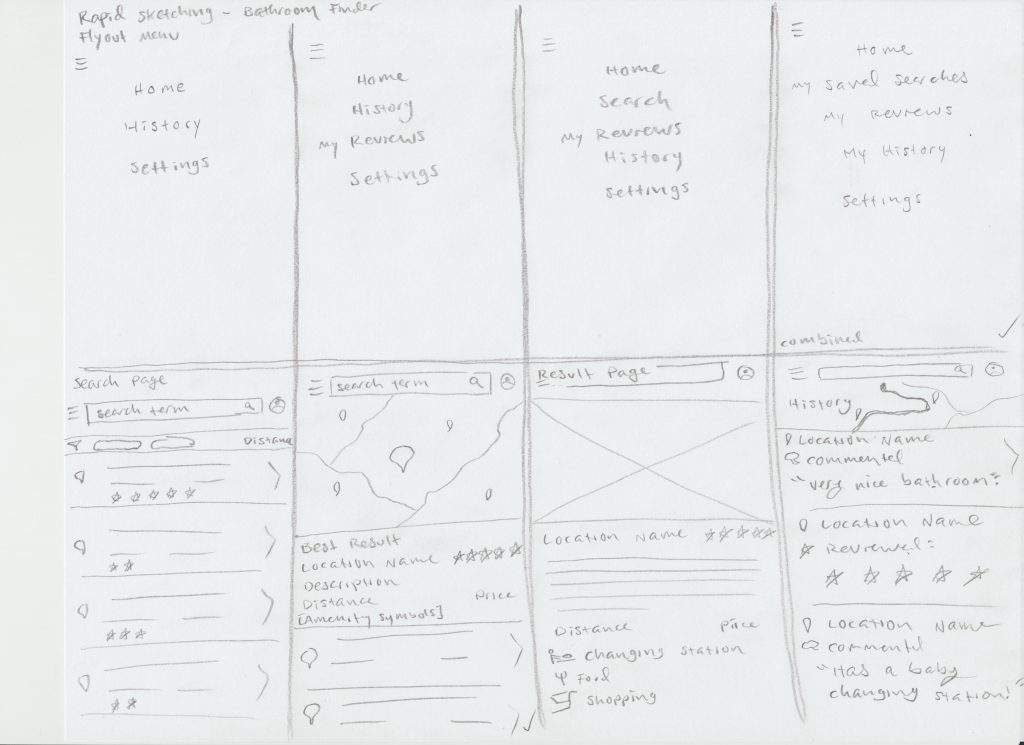 Rapid Sketching - Bathroom Finder
Flyout Menu
Home
History
Settings
Home
History
My Reviews
Settings
Home
Search
My Reviews
History
Settings
Home
My Saved Searches
My Reviews
My History
Settings
combined
Search Page
search term
Distance
search term
Best Result
Location Name
Description
Distance Price
[Amenity Symbols]
Result Page
Location Name
Distance Price
changing station
Food
Shopping
History
Location Name
commented
"very nice bathroom"
Location Name
Reviewed:
Location Name
commented
"Has a baby
changing station!"